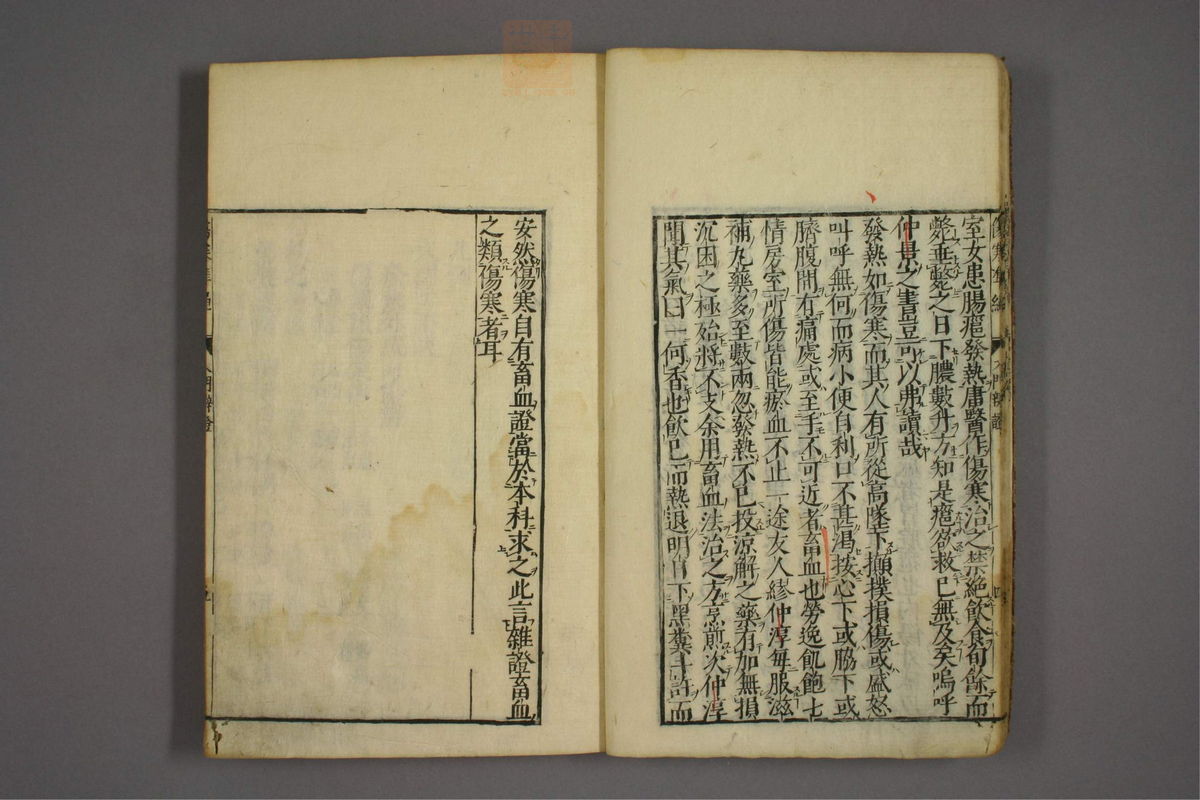 室女患腸癰發熱庸醫作傷寒治之禁絕飲食旬餘而
斃垂斃之日下膿數升方知是癰為救已無及矣嗚呼
仲景之書豈可以弗讀哉
發熱如傷寒而其人有所從高墜下攧撲損傷或盛怒
叫呼無何而病小便自利口不甚渴按心下或脇下或
臍腹間有痛處或至手不可近者畜血也勞逸飢飽七
情房室所傷皆能瘀血不止一途友人繆仲淳每服滋
補丸藥多至數兩忽發熱不已投涼解之藥有加無損
沉困之極始將不支余用畜血法治之方烹煎次仲淳
聞其氣曰一何香也飲已而熱退明日下黑糞斗許而
安然傷寒自有畜血證當於本科求之此言雜證畜血
之類傷寒者耳